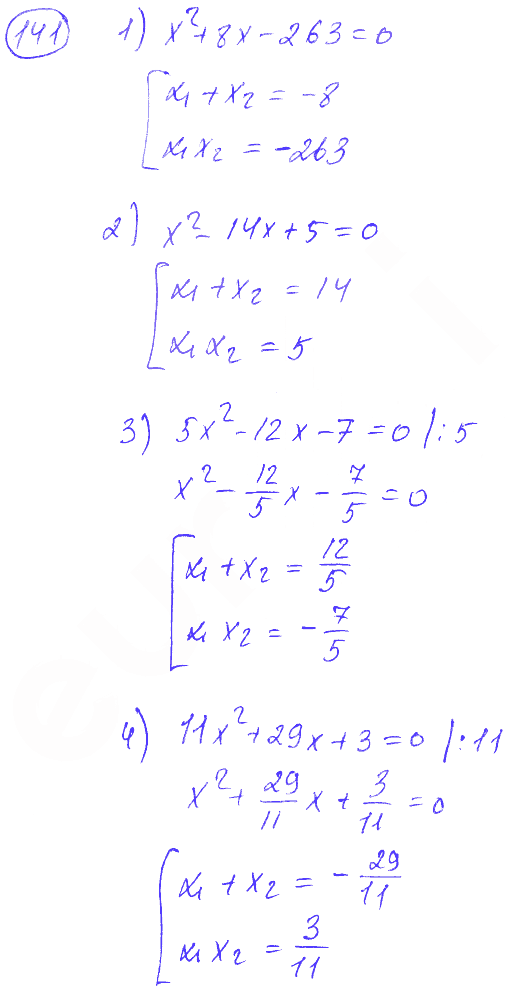 141 1) x²+8x-263=0
x₁+x₂=-8
x₁x₂=-263
2) x²-14x+5=0
x₁+x₂=14
x₁x₂=5
3) 5x²-12x-7=0 /:5
x²-12/5x-7/5=0
x₁+x₂=12/5
x₁x₂=-7/5
4) 11x²+29x+3=0 /:11
x²+29/11x+3/11=0
x₁+x₂=-29/11
x₁x₂=3/11